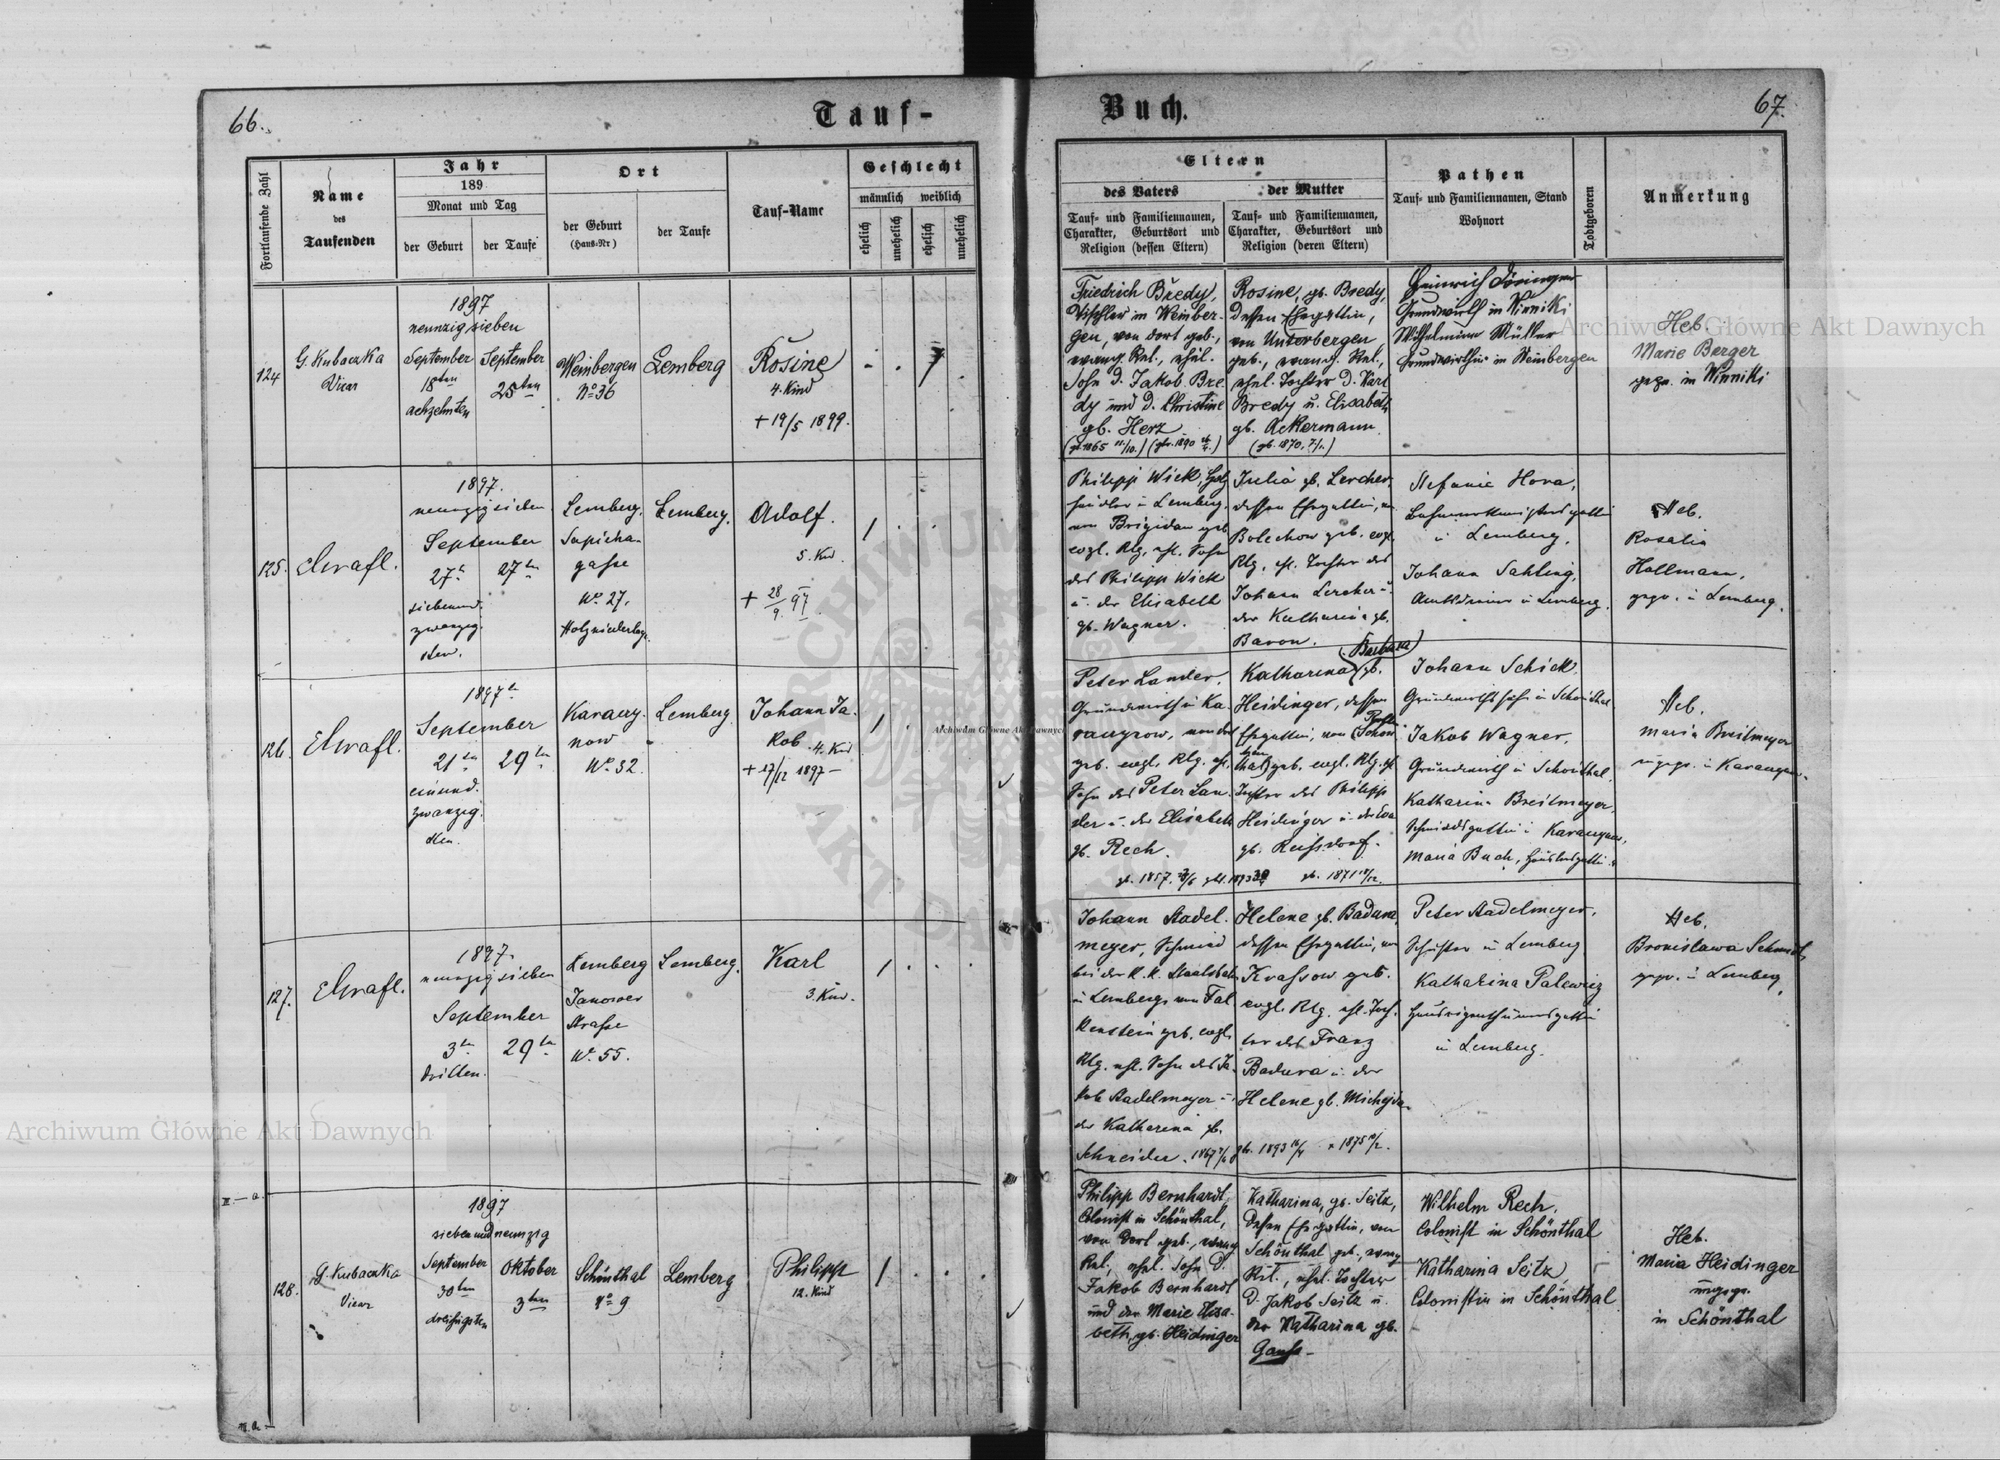 66.
Tauf-
Fortlaufende Zahl
Name
des
Taufenden
Jahr
189
Monat und Tag
der Geburt
der Taufe
Ort
der Geburt
(Haus-Nr)
der Taufe
Tauf-Name
Geschlecht
männlich weiblich
ehelich
unehelich
ehelich
unehelich
124
G. Kubaczka
Vicar
1897
neunzig sieben
September
18ten
achzehnten
September
25ten
Weinbergen
No 36
Lemberg
Rosine
4. Kind
+ 19/5 1899.
125.
1897.
neunzigsieben
September
27t
siebenund-
zwanzig-
sten.
27ten
Lemberg.
Sapieha-
gasse
No. 27.
Holzniederlage
Lemberg.
Adolf.
5. Kind.
+ 28/9. 97
126.
1897
September
21ten
einund-
zwanzig-
sten.
29ten
Karaczy-
now
No. 32.
Lemberg.
Johann Ja-
kob. 4. Kind
+ 17/12 1897 –
127.
1897.
neunzigsieben
September
3ten
dritten.
29ten
Lemberg
Janower
Strasse
No. 55.
Lemberg.
Karl
3. Kind.
128.
G. Kubaczka
Vicar
1897
siebenundneunzig
September
30ten
dreissigsten
Oktober
3ten
Schönthal
No 9
Lemberg
Philipp
12. Kind
Buch.
67.
Eltern
des Vaters
Tauf- und Familiennamen,
Charakter, Geburtsort und
Religion (dessen Eltern)
der Mutter
Tauf- und Familiennamen,
Charakter, Geburtsort und
Religion (deren Eltern)
Pathen
Tauf- und Familiennamen, Stand
Wohnort
Todtgeboren
Anmerkung
Friedrich Bredy,
Tischler in Weinber-
gen, von dort geb.,
evang. Rel., ehel.
Sohn d. Jakob Bre-
dy und d. Christine
gb. Herz
Rosine, gb. Bredy,
dessen Ehegattin,
von Unterbergen
geb., evang. Rel.,
ehel. Tochter d. Karl
Bredy u. Elisabeth
gb. Ackermann
(gb. 1870. 7/1.)
Heinrich
Grundwirth in Winniki
Wilhelmine Müller
Grundwirthin in Weinbergen
Heb.
Marie Berger
gepr. in Winniki
Philipp Wick, Holz
händler in Lemberg,
von Brigidau geb.
evgl. Rlg. ehl. Sohn
des Philipp Wick
u. der Elisabeth
gb. Wagner.
Julia gb. Lercher,
dessen Ehegattin, v.
Bolechow geb. evgl.
Rlg. ehl. Tochter des
Johann Lercher u.
der Katharina gb.
Baron.
Stefanie Hora,
in Lemberg.
Johann Sahling,
Amtsdiener in Lemberg.
Heb.
Rosalia
Hollmann,
gepr. in Lemberg.
Peter Lander,
Grundwirth in Ka-
raczynow, von dort
geb. evgl. Rlg. ehl.
Sohn des Peter Lan-
der u. der Elisabeth
gb. Rech.
(Barbara)
Katharina gb.
Heidinger, dessen
Ehegattin, von Schön-
thal geb. evgl. Rlg. ehl.
Tochter des Philipp
Heidinger u. der Eva
gb. Reissdorf.
Johann Schick,
Grundwirthssohn in Schönthal
Jakob Wagner,
Grundwirth in Schönthal,
Katharina Breitmeyer,
Schmiedsgattin in Karaczynow,
Maria Buch,
Heb.
Maria Breitmeyer
ungepr. in Karaczynow.
Johann Stadel-
meyer, Schmied
bei der K. K. Staatsbahn
in Lemberg, von Fal-
kenstein geb. evgl.
Rlg. ehl. Sohn des Ja-
kob Stadelmeyer u.
der Katharina gb.
Schneider.
Helene gb. Badura,
dessen Ehegattin, von
Krassow geb.
evgl. Rlg. ehl. Toch-
ter des Franz
Badura u. der
Helene gb. Michejda.
Peter Stadelmeyer,
Schuster in Lemberg
Katharina Palewicz
Hauseigenthümersgattin
in Lemberg.
Heb.
Bronislawa Schmidt,
gepr. in Lemberg.
Philipp Bernhardt,
Colonist in Schönthal,
von dort geb., evang.
Rel., ehel. Sohn d.
Jakob Bernhardt
und der Marie Elisa-
beth, gb. Heidinger
Katharina, gb. Seitz,
dessen Ehegattin, von
Schönthal geb., evang.
Rel., ehel. Tochter
d. Jakob Seitz u.
der Katharina gb.
Gauss –
Wilhelm Rech,
Colonist in Schönthal
Katharina Seitz,
Colonistin in Schönthal
Heb.
Maria Heidinger
ungepr.
in Schönthal
Archiwum Główne Akt Dawnych
Archiwum Główne Akt Dawnych
Archiwum Główne Akt Dawnych